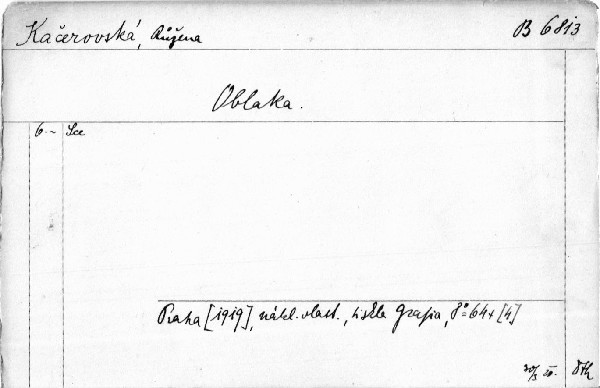 Kačerovská, Růžena B 6813
Oblaka.
6.–
Praha [1919], nákl. vlast., tiskla Grafia, 8°=64+[4]